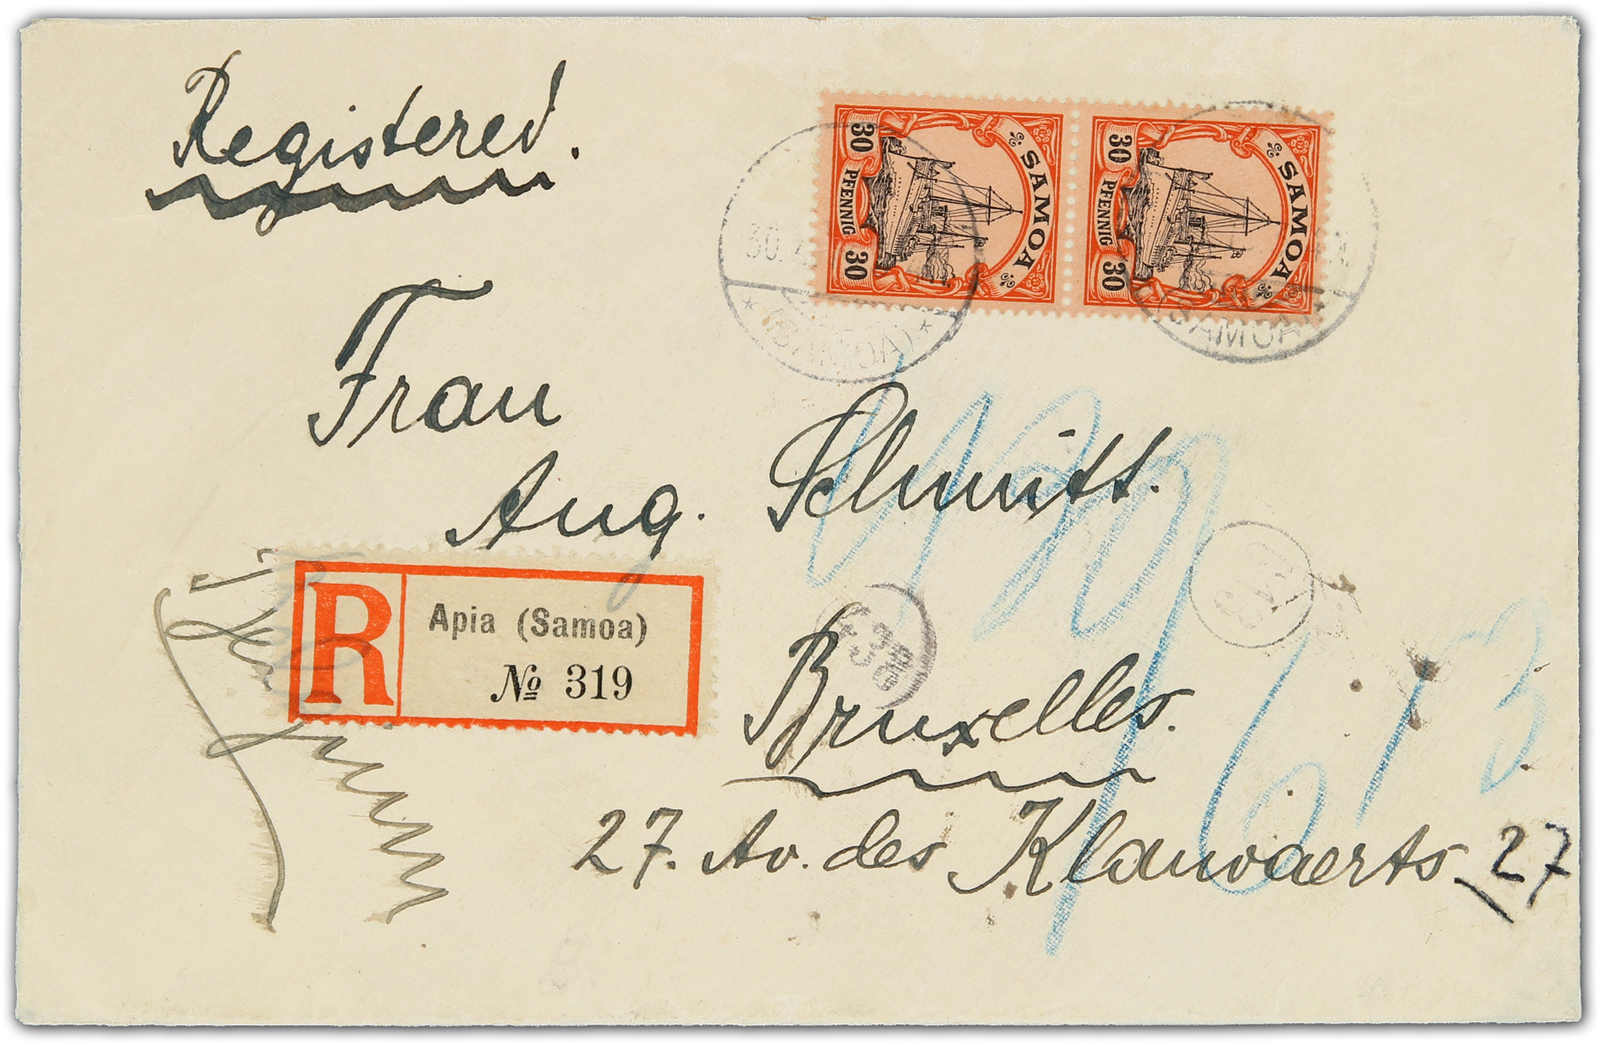 Registered.
SAMOA
30 PFENNIG 30
SAMOA
30 PFENNIG 30
30.
(SAMOA)
(SAMOA)
Frau
Aug. Schmitt.
R
Apia (Samoa)
№ 319
Bruxelles.
27. Av. des Klauwaerts
27